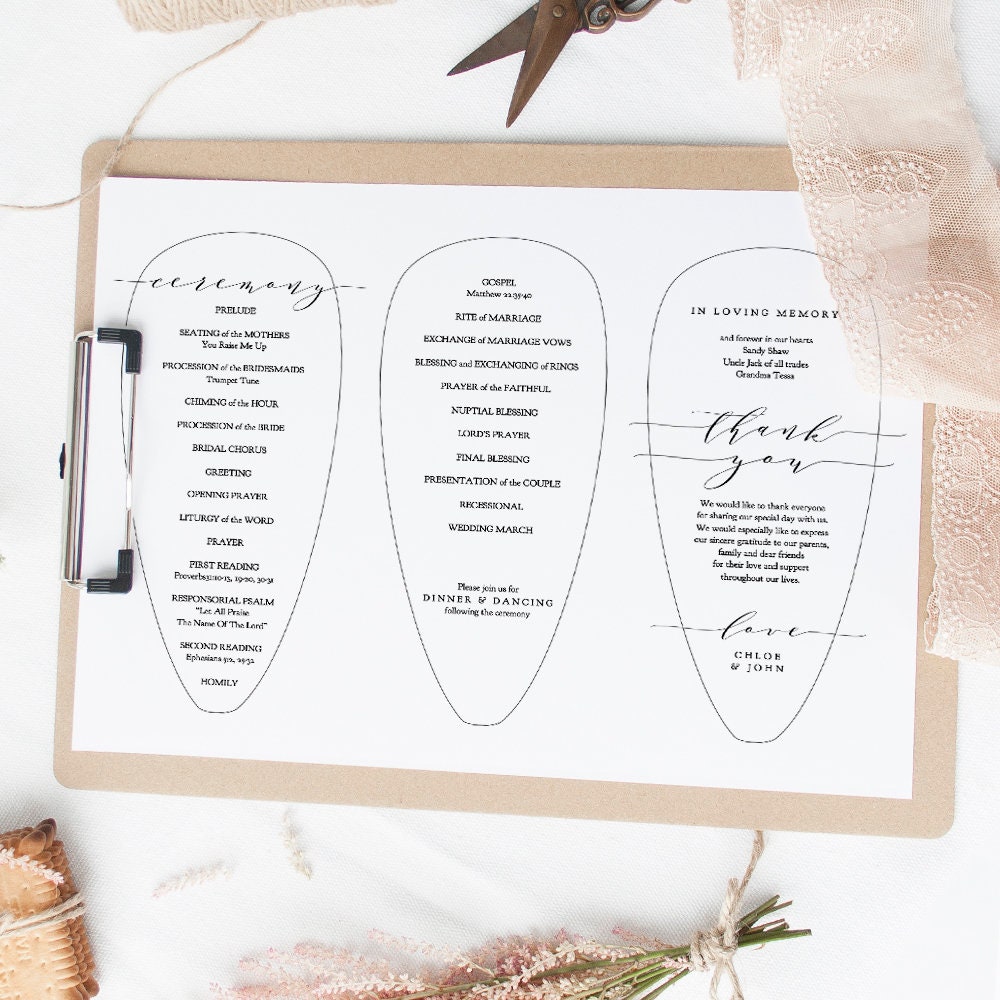 ceremony
PRELUDE
SEATING of the MOTHERS
You Raise Me Up
PROCESSION of the BRIDESMAIDS
Trumpet Tune
CHIMING of the HOUR
PROCESSION of the BRIDE
BRIDAL CHORUS
GREETING
OPENING PRAYER
LITURGY of the WORD
PRAYER
FIRST READING
Proverbs31:10-13, 19-20, 30-31
RESPONSORIAL PSALM
"Let All Praise
The Name Of The Lord"
SECOND READING
Ephesians 5:2, 25:32
HOMILY
GOSPEL
Matthew 22:35-40
RITE of MARRIAGE
EXCHANGE of MARRIAGE VOWS
BLESSING and EXCHANGING of RINGS
PRAYER of the FAITHFUL
NUPTIAL BLESSING
LORD'S PRAYER
FINAL BLESSING
PRESENTATION of the COUPLE
RECESSIONAL
WEDDING MARCH
Please join us for
DINNER & DANCING
following the ceremony
IN LOVING MEMORY
and forever in our hearts
Sandy Shaw
Uncle Jack of all trades
Grandma Tessa
thank
you
We would like to thank everyone
for sharing our special day with us.
We would especially like to express
our sincere gratitude to our parents,
family and dear friends
for their love and support
throughout our lives.
love
CHLOE
& JOHN